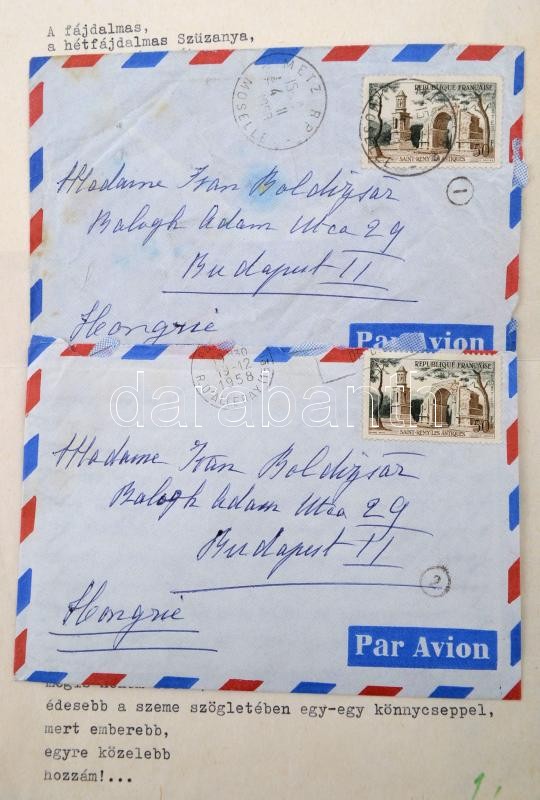 A fájdalmas,
a hétfájdalmas Szüzanya,
METZ R.P.
MOSELLE
RÉPUBLIQUE FRANÇAISE
50F
SAINT-REMY LES ANTIQUES
1
Madame Ivan Boldizsár
Balogh Adam Utca 29
Budapest II
Hongrie
Par Avion
19-12
1958
RÉPUBLIQUE FRANÇAISE
50F
SAINT-REMY LES ANTIQUES
darabanth
Madame Ivan Boldizsár
Balogh Adam Utca 29
Budapest II
2
Hongrie
Par Avion
édesebb a szeme szögletében egy-egy könnycseppel,
mert emberebb,
egyre közelebb
hozzám!...